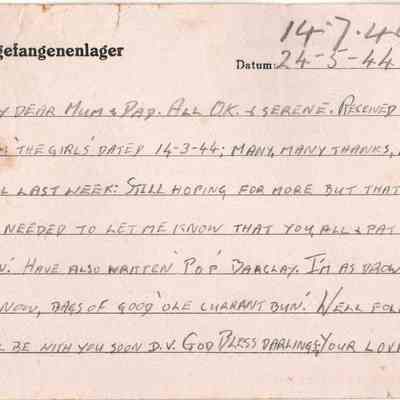 gefangenenlager
14-7-44
Datum: 24-5-44
Y DEAR MUM & DAD. ALL OK. & SERENE. RECEIVED
'THE GIRLS' DATED 14-3-44; MANY, MANY THANKS,
L LAST WEEK: STILL HOPING FOR MORE BUT THAT
NEEDED TO LET ME KNOW THAT YOU, ALL & PAT
N'. HAVE ALSO WRITTEN 'POP' BARCLAY. I'M AS BROW
NOW, BAGS OF GOOD 'OLE CURRANT BUN'. WELL FOL
L BE WITH YOU SOON D.V. GOD BLESS DARLINGS, YOUR LOV